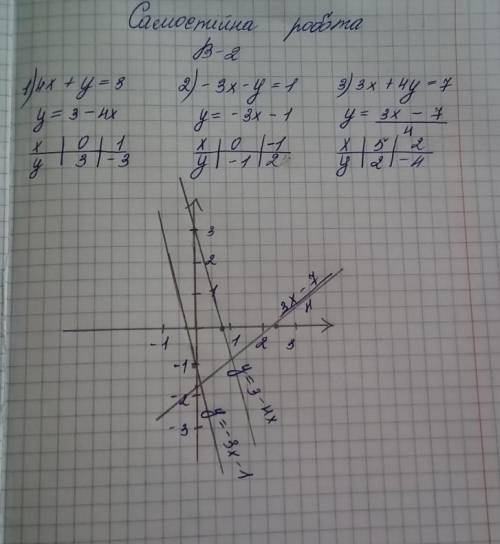 Самостійна робота
В-2
1) 4x + y = 3 2) -3x - y = 1 3) 3x + 4y = 7
y = 3 - 4x y = -3x - 1 y = 3x - 7 / 4
x | 0 | 1 x | 0 | -1 x | 5 | 2
y | 3 | -3 y | -1 | 2 y | 2 | -4
3
2
1
3x - 7 / 4
-1 1 2 3
-1
-2
-3
y = 3 - 4x
y = -3x - 1